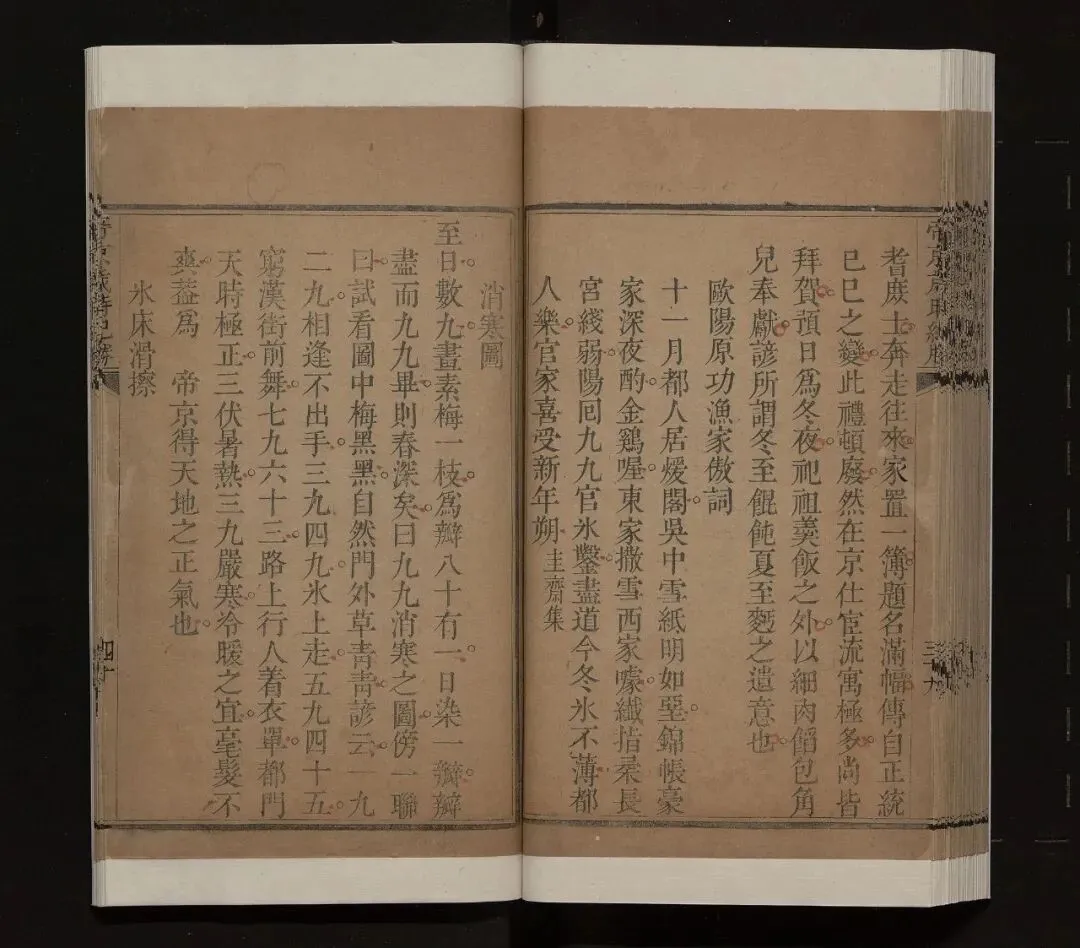 耆庶士奔走往來家置一簿題名滿幅傳自正統
己巳之變此禮頓廢然在京仕宦流寓極多尚皆
拜賀預日爲冬夜祀祖羹飯之外以細肉餡包角
兒奉獻諺所謂冬至餛飩夏至麪之遺意也
歐陽原功漁家傲詞
十一月都人居煖閣吳中雪紙明如堊錦帳豪
家深夜酌金鷄喔東家撒雪西家噱纖指柔長
宮綫弱陽回九九官氷鑿盡道今冬氷不薄都
人樂官家喜受新年朔
圭齋集
三十九
消寒圖
至日數九畫素梅一枝爲瓣八十有一日染一瓣瓣
盡而九九畢則春深矣曰九九消寒之圖傍一聯
曰試看圖中梅黑黑自然門外草青青諺云一九
二九相逢不出手三九四九氷上走五九四十五
窮漢街前舞七九六十三路上行人着衣單都門
天時極正三伏暑熱三九嚴寒冷暖之宜毫髮不
爽葢爲 帝京得天地之正氣也
氷床滑擦
四十